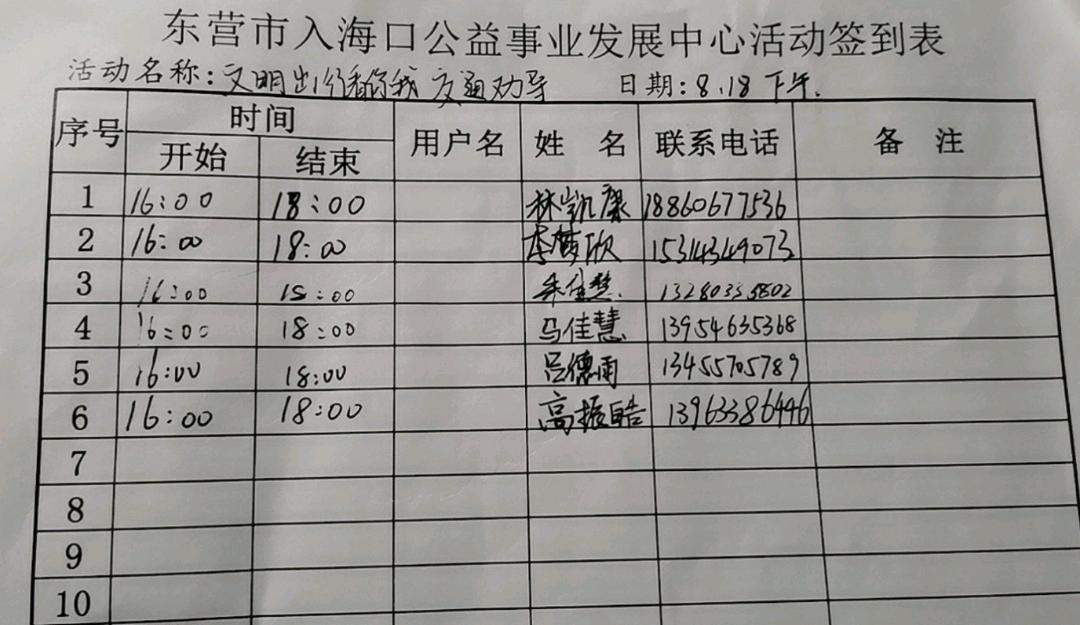 东营市入海口公益事业发展中心活动签到表
活动名称:文明出行看你我 交通劝导 日期:8.18下午.
序号 时间 用户名 姓 名 联系电话 备 注
开始 结束
1 16:00 18:00 林凯康 18860677536
2 16:00 18:00 李梦欣 15314349073
3 16:00 18:00 13280335802
4 16:00 18:00 马佳慧 13954635368
5 16:00 18:00 吕德雨 13455705789
6 16:00 18:00 高振皓 13963386446
7
8
9
10